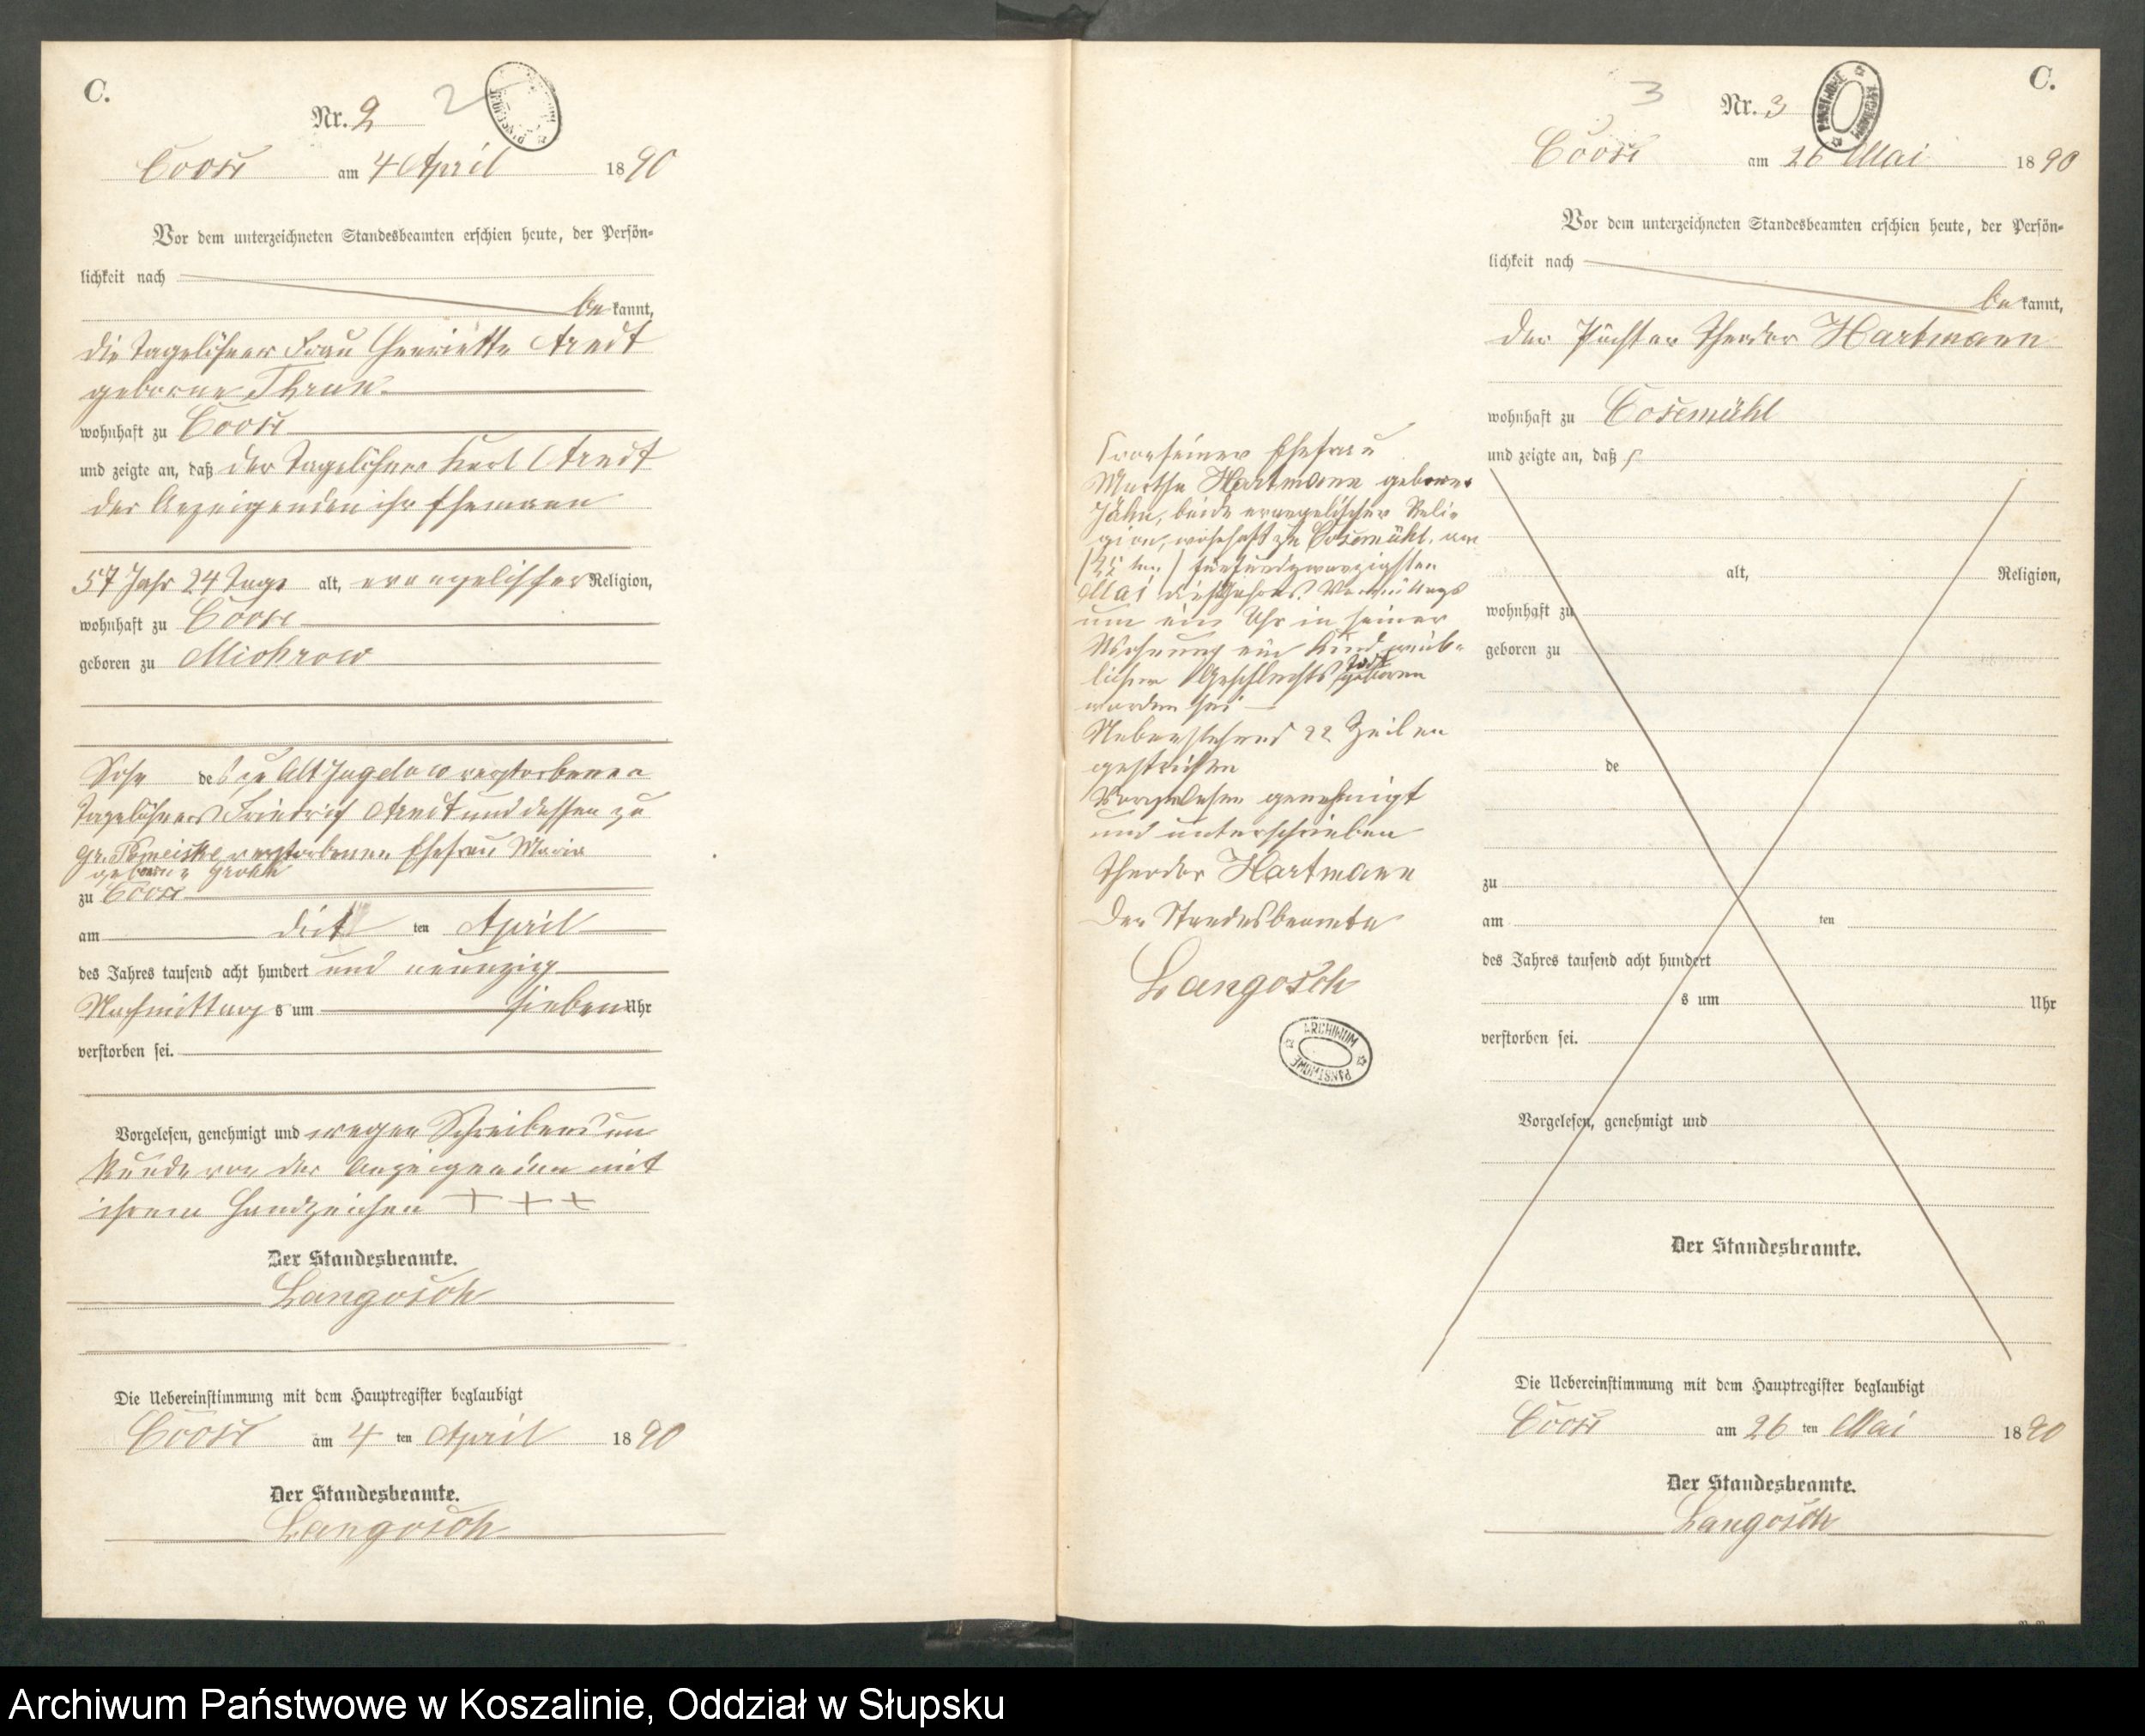 C.
Nr. 2
2
Coose am 4 April 1890
Vor dem unterzeichneten Standesbeamten erschien heute, der Persön-
lichkeit nach
be kannt,
die Tagelöhner Frau Henriette Arndt
geborne Thrun
wohnhaft zu Coose
und zeigte an, daß der Tagelöhner Karl Arndt
der Anzeigenden ihr Ehemann
57 Jahr 24 Tage alt, evangelischer Religion,
wohnhaft zu Coose
geboren zu Mickrow
Sohn des zu Alt Jugelow verstorbenen
Tagelöhners Friedrich Arndt und dessen zu
Gr. verstorbenen Ehefrau Maria
geborne
zu Coose
am ten April
des Jahres tausend acht hundert und neunzig
Nachmittag s um sieben Uhr
verstorben sei.
Vorgelesen, genehmigt und wegen Schreibens un
kunde von der Anzeigenden mit
ihrem Handzeichen + + +
Der Standesbeamte.
Langosch
Die Uebereinstimmung mit dem Hauptregister beglaubigt
Coose am 4 ten April 1890
Der Standesbeamte.
Langosch
C.
3
Nr. 3
Coose am 26 Mai 1890
Vor dem unterzeichneten Standesbeamten erschien heute, der Persön-
lichkeit nach
be kannt,
der Pächter Theodor Hartmann
wohnhaft zu Cosemühl
und zeigte an, daß
alt, Religion,
wohnhaft zu
geboren zu
de
zu
am ten
des Jahres tausend acht hundert
s um Uhr
verstorben sei.
Vorgelesen, genehmigt und
Der Standesbeamte.
Die Uebereinstimmung mit dem Hauptregister beglaubigt
Coose am 26 ten Mai 1890
Der Standesbeamte.
Langosch
von seiner Ehefrau
Martha Hartmann geborne
Jähn, beide evangelischer Reli-
gion, wohnhaft zu Cosemühl, am
(25 ten) fünfundzwanzigsten
Mai dieses Jahres Vormittags
um ein Uhr in seiner
Wohnung ein Kind weib-
lichen Geschlechts todt geboren
worden sei
Nebenstehend 22 Zeilen
gestrichen
Vorgelesen genehmigt
und unterschrieben
Theodor Hartmann
Der Standesbeamte
Langosch
ARCHIWUM
PAŃSTWOWE
Archiwum Państwowe w Koszalinie, Oddział w Słupsku